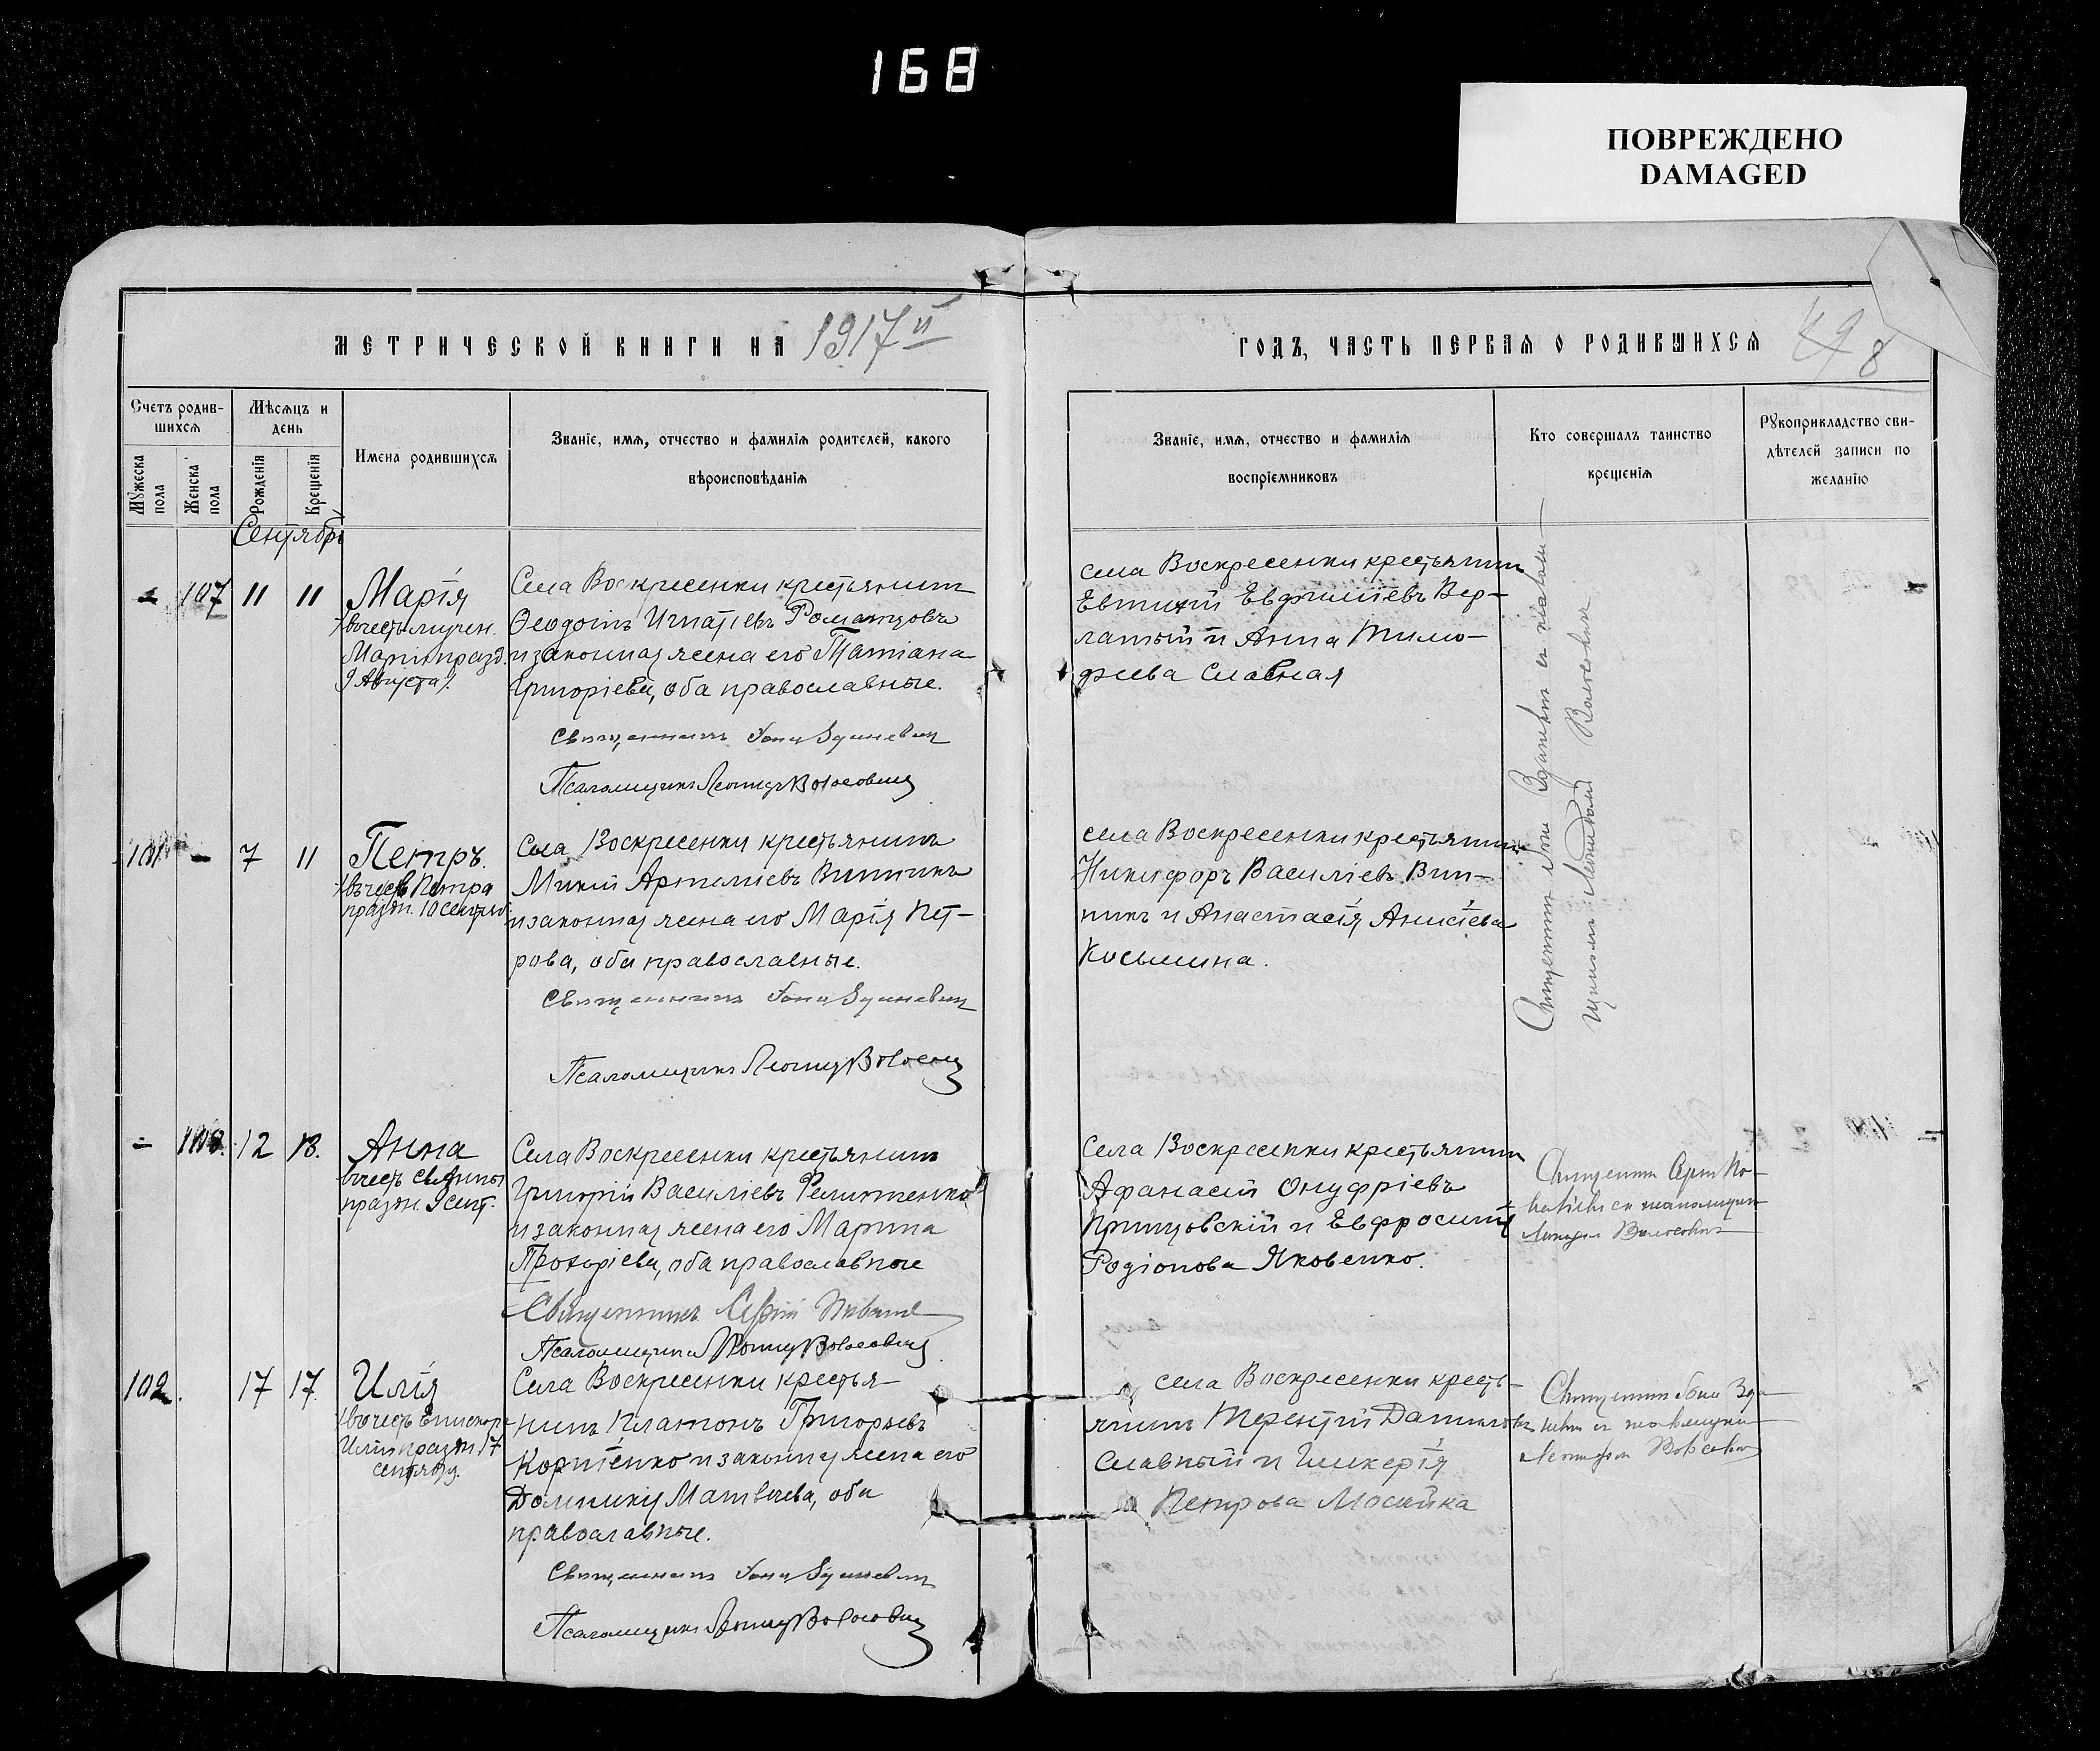 168
ПОВРЕЖДЕНО
DAMAGED
МЕТРИЧЕСКОЙ КНИГИ НА 1917 й
ГОДЪ, ЧАСТЬ ПЕРВАЯ О РОДИВШИХСЯ
49 8
Счетъ родив-
шихся
Мужеска
пола
Женска
пола
Мѣсяцъ и
день
Рожденія
Крещенія
Имена родившихся
Званіе, имя, отчество и фамилія родителей, какого
вѣроисповѣданія
Званіе, имя, отчество и фамилія
воспріемниковъ
Кто совершалъ таинство
крещенія
Рукоприкладство сви-
дѣтелей записи по
желанію
Сентябрь
- 107 11 11
Марія
(въ честь мучен.
Маріи празд.
9 Августа).
Села Воскресенки крестьянинъ
Ѳеодоій Игнатіевъ Романцовъ
и законная жена его Татіана
Григоріева, оба православные.
Священникъ Іона Зданевич
Псаломщикъ Леонид Волосович
села Воскресенки крестьянинъ
Евтихій Евфиміевъ Вер-
латый и Анна Тимо-
феева Славная
Священник Іона Зданевич с псалом-
щиком Леонидом Волосовичем
101 - 7 11
Петръ.
(въ честь Петра
праздн. 10 сентяб.
Села Воскресенки крестьянинъ
Артеміевъ Винникъ
и законная жена его Марія Пет-
рова, оба православные.
Священникъ Іона Зданевич
Псаломщикъ Леонид Волосович
села Воскресенки крестьянинъ
Никифоръ Василіевъ Вин-
никъ и Анастасія Анисіева
Косьмина.
- 108. 12 13.
Анна
въ честь св. Анны
праздн. 9 сент.
Села Воскресенки крестьянинъ
Григорій Василіевъ
и законная жена его Марина
Прокоріева, оба православные
Священникъ Сергій
Псаломщикъ Леонид Волосович
Села Воскресенки крестьянинъ
Афанасій Онуфріевъ
и Евфросинія
Родіонова Яковенко.
Священник Сергій
с псаломщиком
Леонидом Волосович
102. 17 17.
Илія
(въ честь Епископа
Иліи праздн. 17
сентября.
Села Воскресенки крестья-
нинъ Платонъ Григорьевъ
Корніенко и законная жена его
Домникія Матвѣева, оба
православные.
Священникъ Іона Зданевич
Псаломщикъ Леонид Волосович
села Воскресенки кресть-
янинъ Терентій Даниловъ
Славный и Гликерія
Петрова Мосейка
Священник Іона Зда-
невич с псаломщиком
Леонидом Волосович